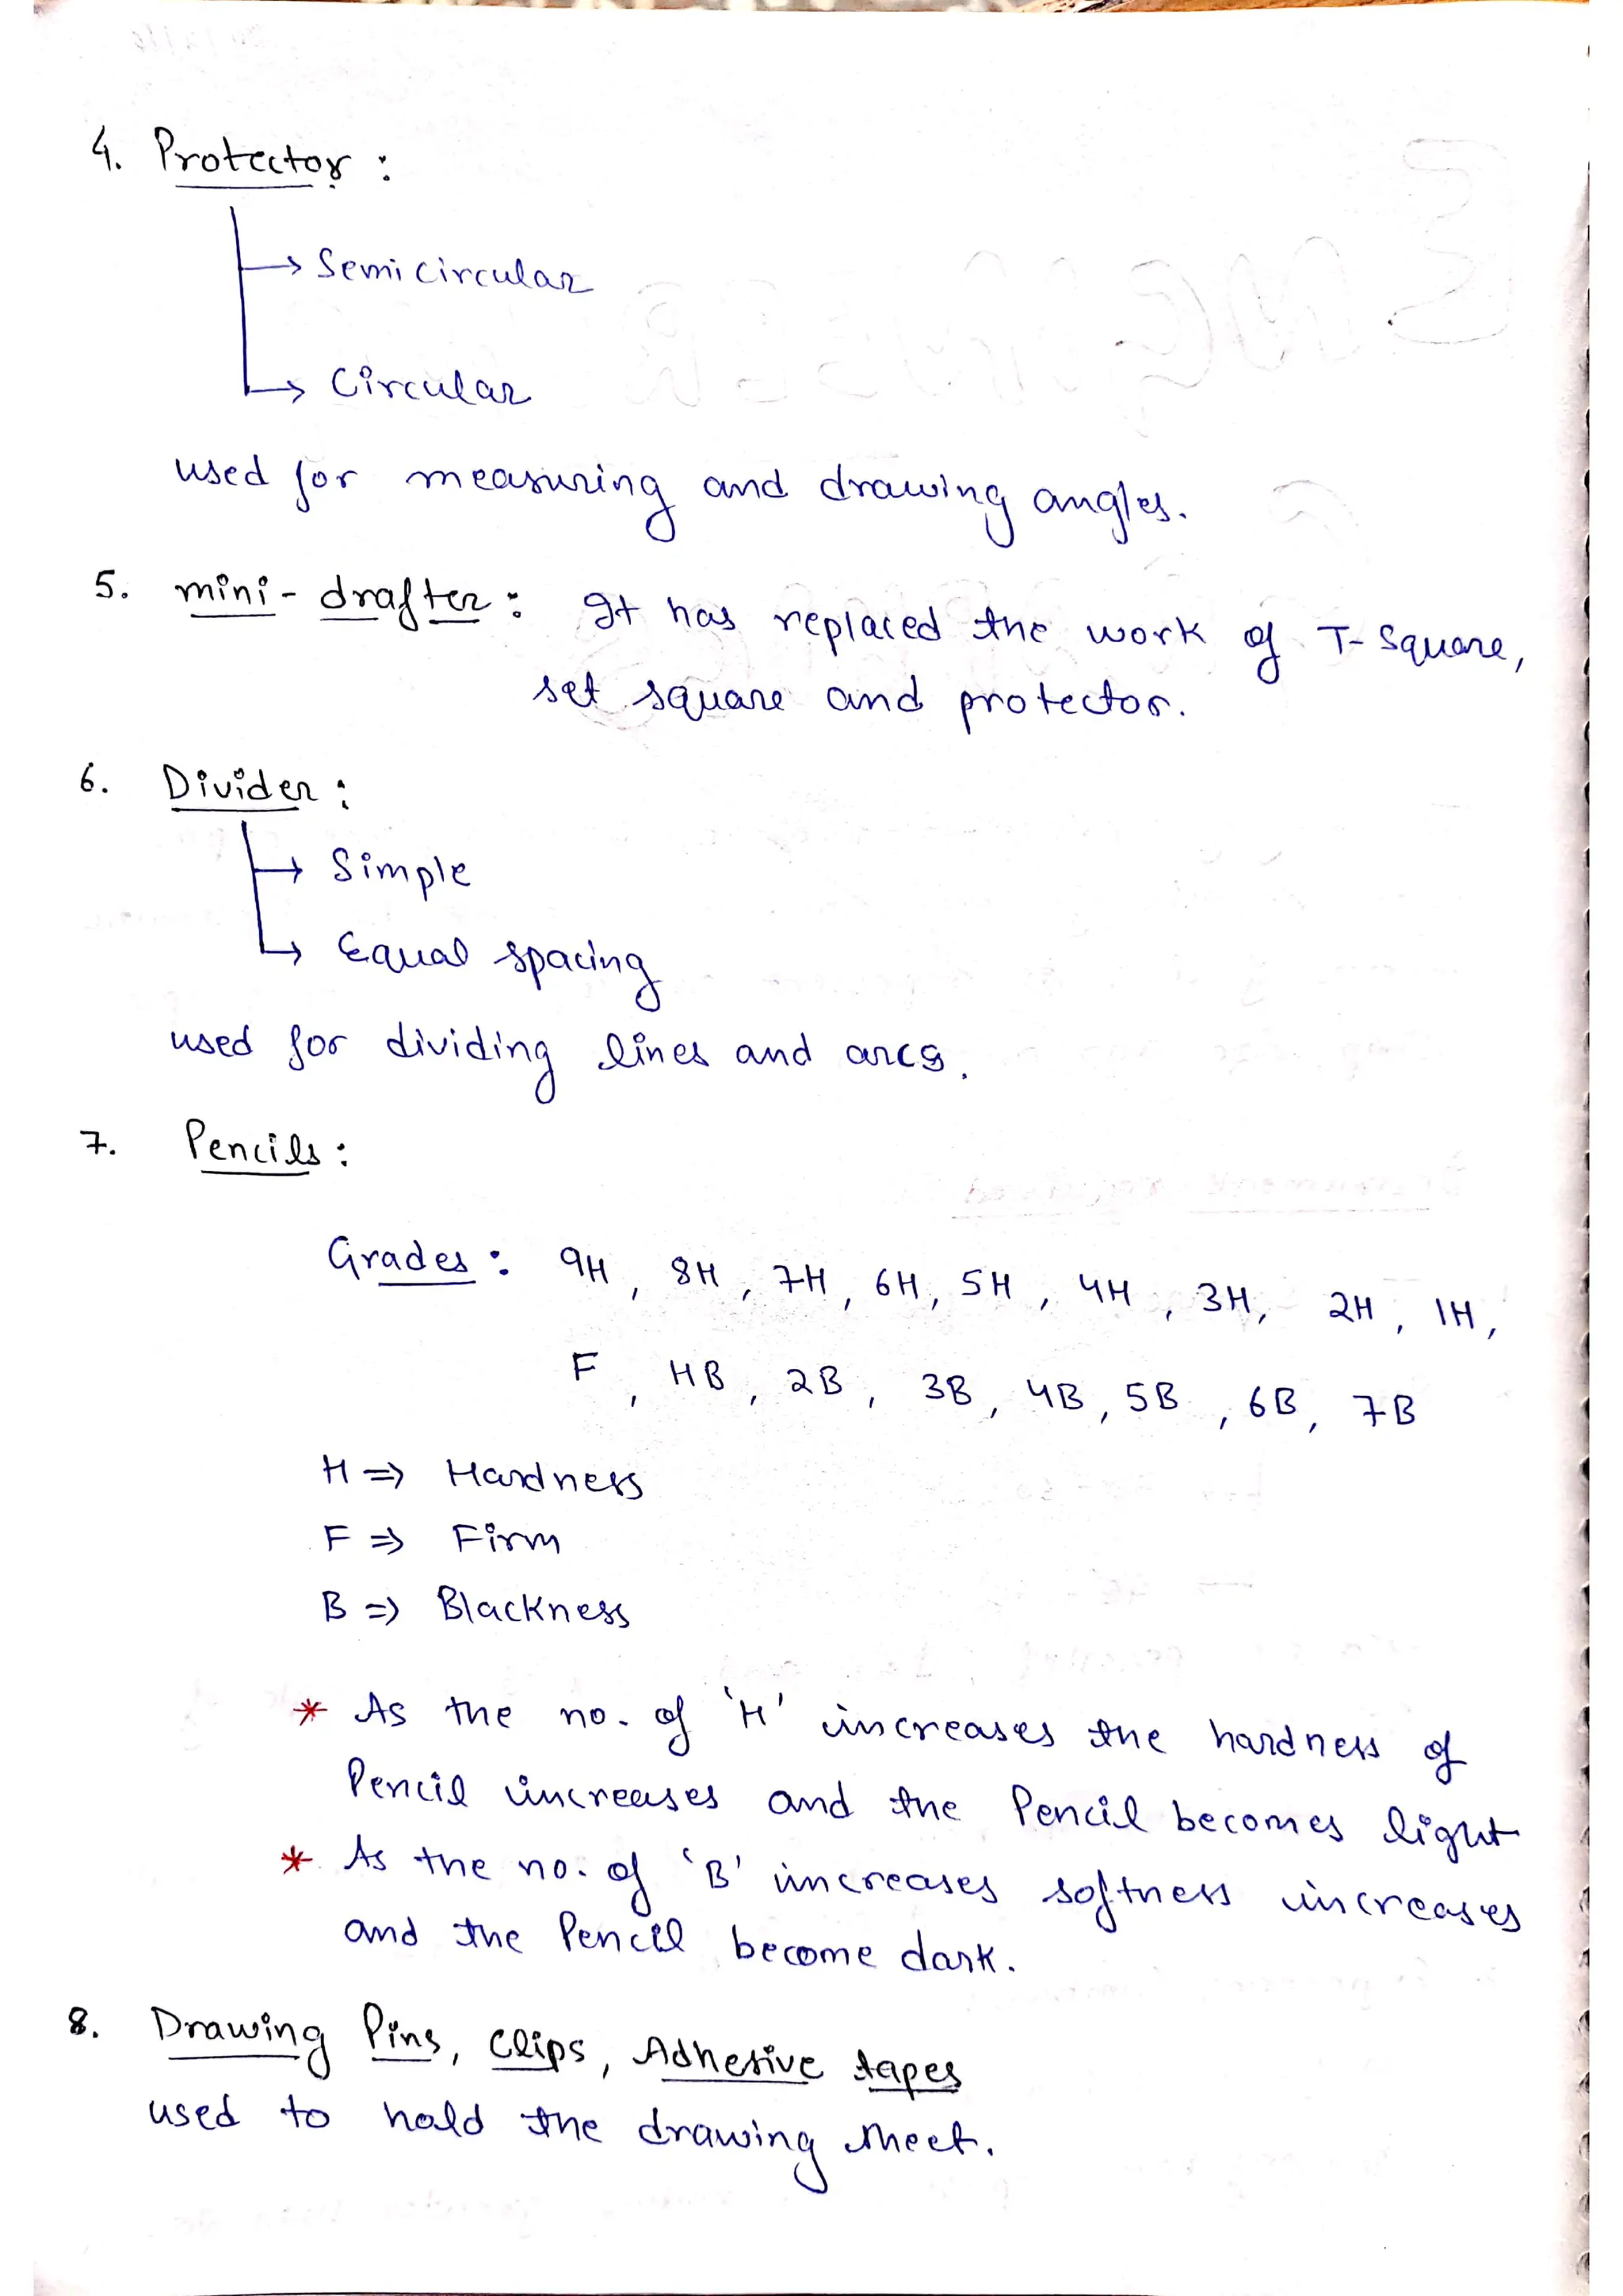 4. Protector :
→ Semicircular
→ Circular
used for measuring and drawing angles.
5. mini-drafter : It has replaced the work of T-Square,
set square and protector.
6. Divider :
→ Simple
→ Equal spacing
used for dividing lines and arcs.
7. Pencils :
Grades : 9H, 8H, 7H, 6H, 5H, 4H, 3H, 2H, 1H,
F, HB, 2B, 3B, 4B, 5B, 6B, 7B
H ⇒ Hardness
F ⇒ Firm
B ⇒ Blackness
* As the no. of 'H' increases the hardness of
Pencil increases and the Pencil becomes light
* As the no. of 'B' increases softness increases
and the Pencil become dark.
8. Drawing Pins, Clips, Adhesive tapes
used to hold the drawing sheet.